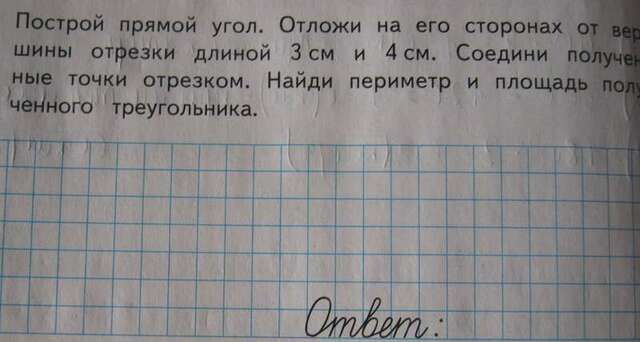 Построй прямой угол. Отложи на его сторонах от вер
шины отрезки длиной 3 см и 4 см. Соедини получен
ные точки отрезком. Найди периметр и площадь полу
ченного треугольника.
Ответ: